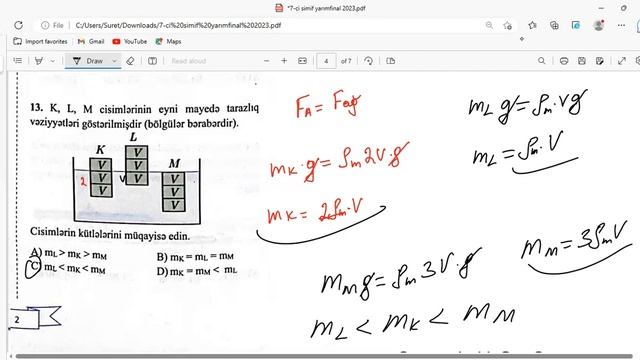 *7-ci sinif yarımfinal 2023.pdf
File
C:/Users/Suret/Downloads/7-ci%20simif%20yarımfinal%202023.pdf
Import favorites
Gmail
YouTube
Maps
Draw
4
of 7
13. K, L, M cisimlərinin eyni mayedə tarazlıq
vəziyyətləri göstərilmişdir (bölgülər bərabərdir).
L
K V M
V V
2 V V V V
V V
V
Cisimlərin kütlələrini müqayisə edin.
A) mL > mK > mM B) mK = mL = mM
C) mL < mK < mM D) mK = mM < mL
2
FA = Fağ
mK·g = ρm2V·g
mK = 2ρm·V
mL g = ρm·Vg
mL = ρm·V
mM = 3ρmV
mM g = ρm 3V·g
mL < mK < mM